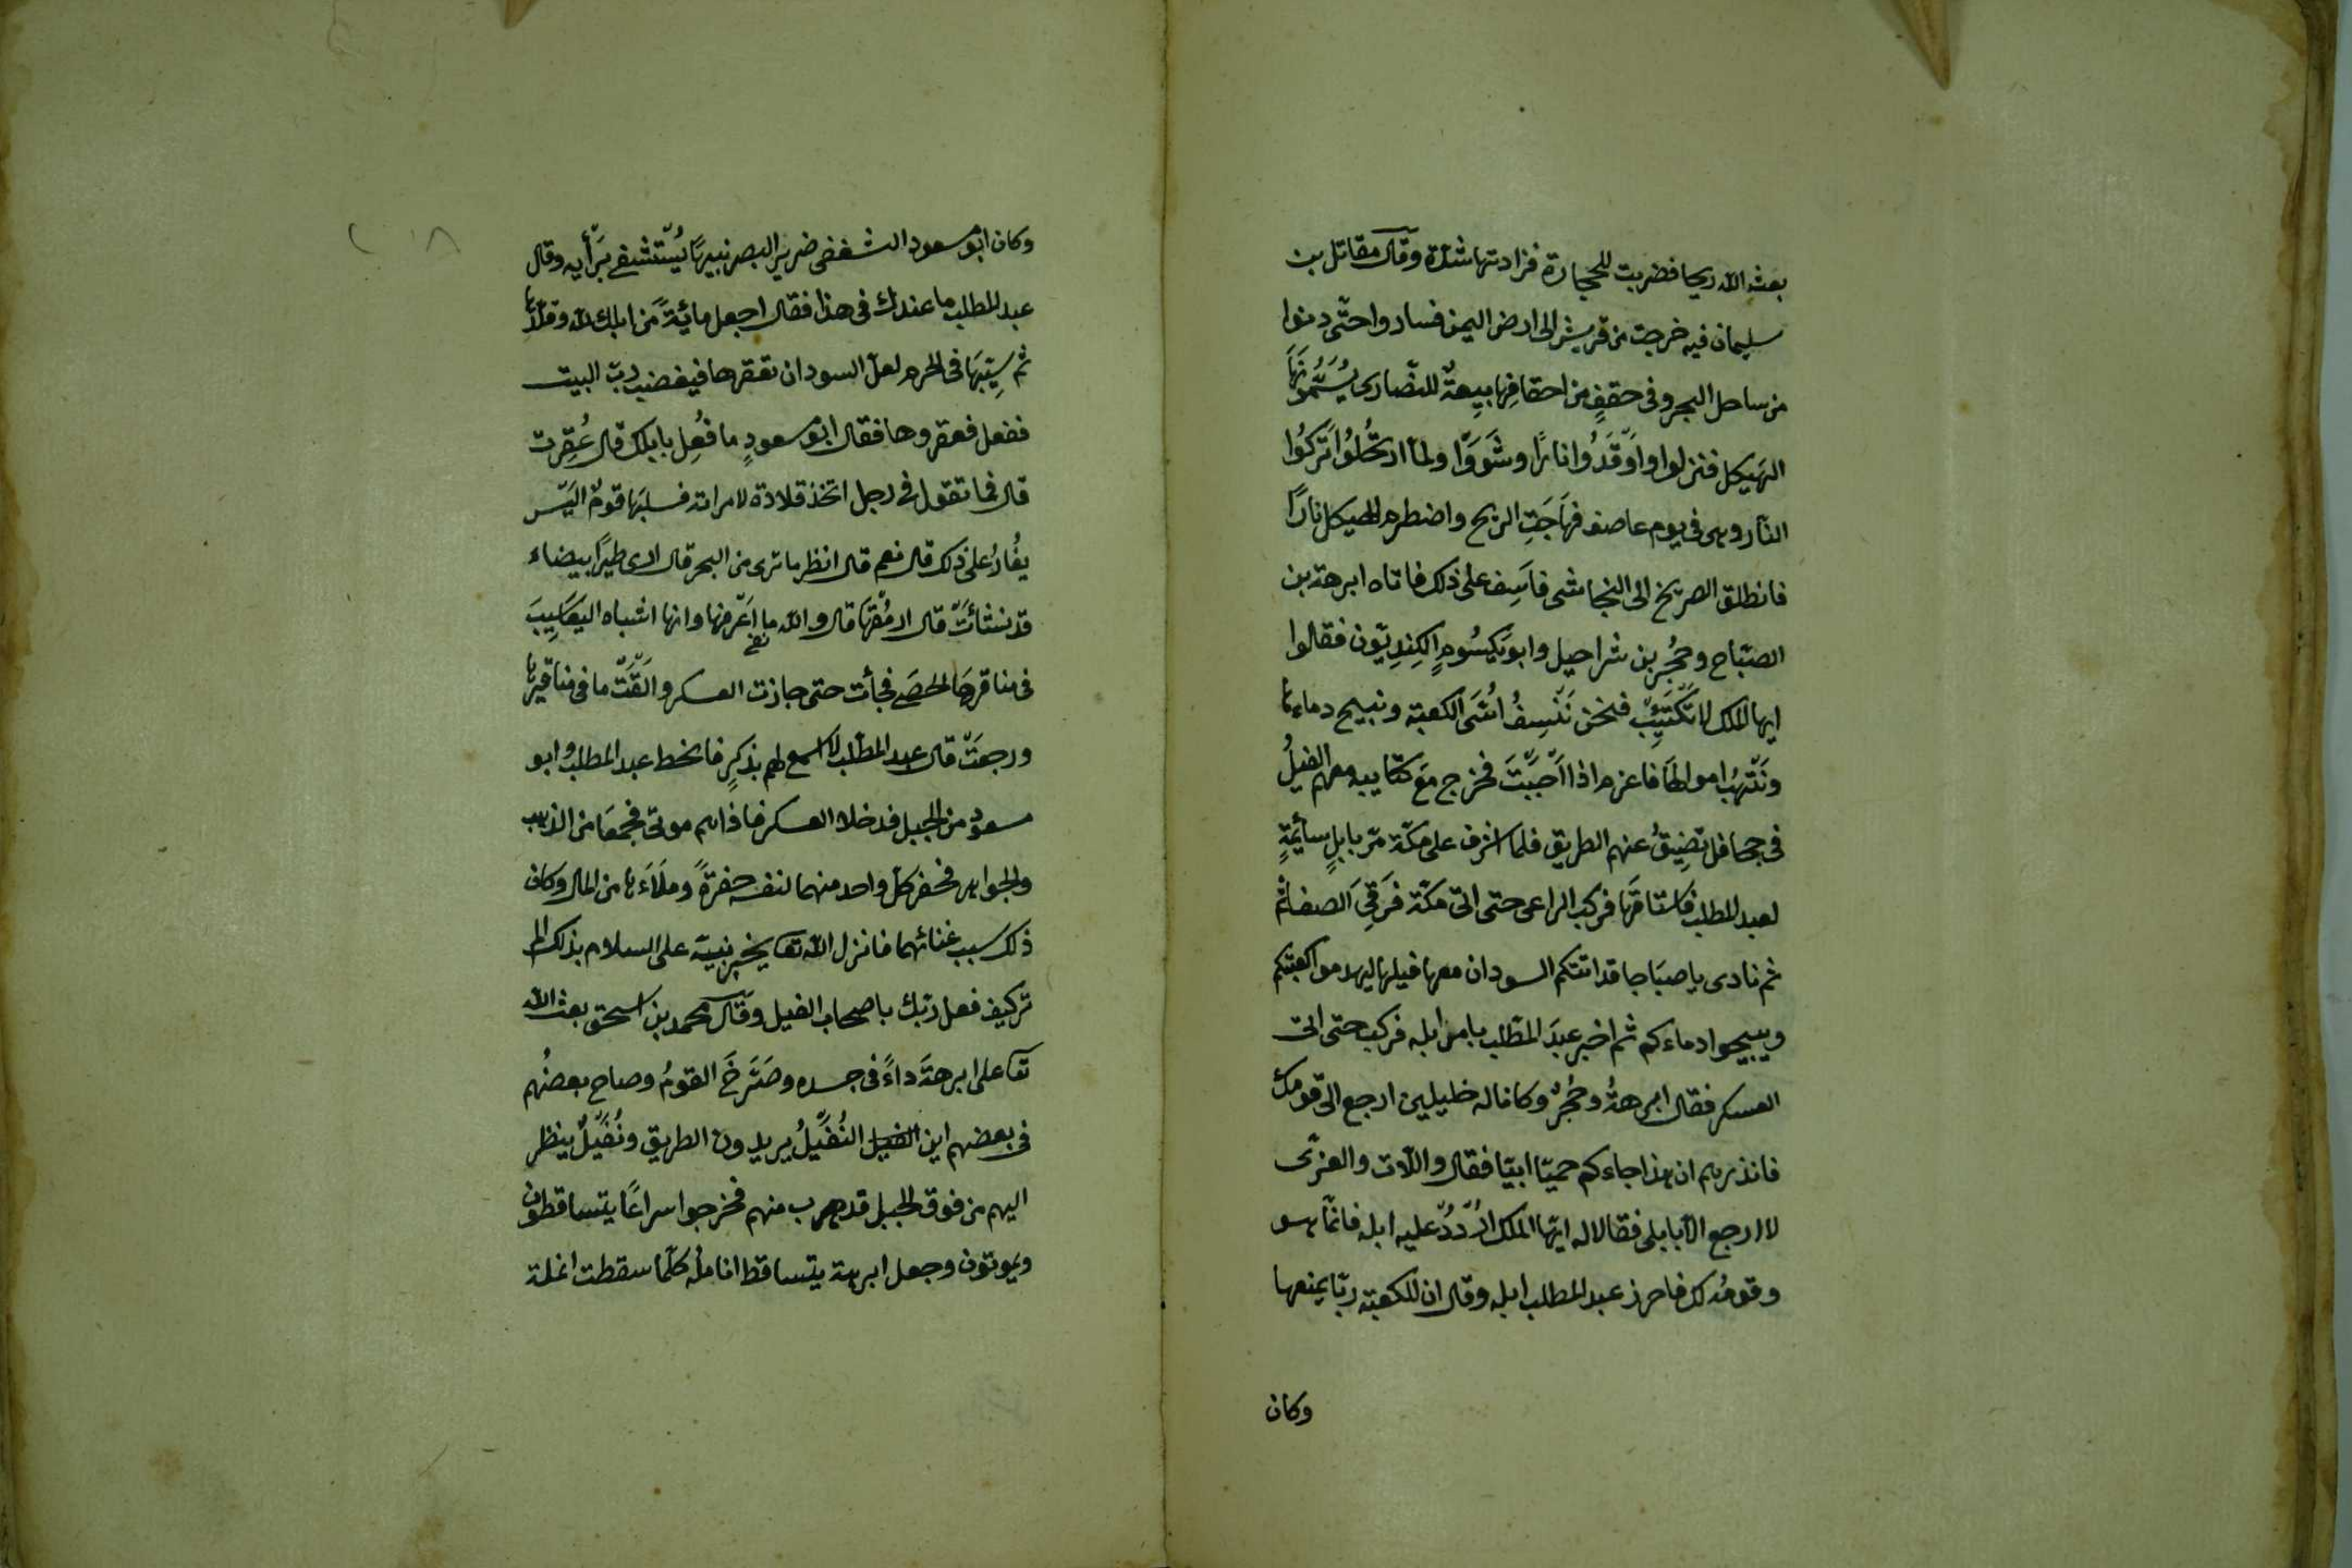 بعث الله ريحا فضربت للحجارة فزادتها شدة وقال مقاتل بن
سليمان فيه خرجت من قريش الى ارض اليمن فساروا حتّى دنوا
من ساحل البحر وفى حقفٍ من احقافِها بيعةٌ للنّصارى يُسَمُّونَهَا
الهَيكل فنزلوا واَوْقَدُوا نارًا وشَوَوْا ولما ارتَحَلُوا تَرَكُوا
النّار وهى فى يوم عاصف فهَاجَتِ الريح واضطرم الهيكل نارًا
فانطلق الصريخ الى النجاشى فاَسِف على ذلك فاتاه ابرهة بن
الصبّاح وحُجُر بن شراحيل وابو يَكسُومِ الكِندِيّون فقالوا
ايها الملك لا تَكْتَئِبْ فنحن نَنْسِفُ الكعبة ونبيح دماءها
ونَنْتَهِبُ اموالها فاعزم اذا اَحْبَبْتَ فخرج مع كتاييبه معهم الفيلُ
فى جحافل تضِيقُ عنهم الطريق فلما اشرف على مكّة مرّ بابلٍ سائمةٍ
لعبد المطلب فاستاقَهَا فركب الراعى حتى اتى مكّة فَرَقِىَ الصفا ثم
ثم نادى يا صبَاحا قد اتتكم السودان معها فيلها ليهدموا كعبتكم
ويبيحوا دماءكم ثم اخبر عبدَ المطّلب بامر ابله فركب حتى اتى
العسكر فقال ابرهةُ وحُجُرٌ وكانا له خليلين ارجع الى قومك
فانذرهم ان هذا جاءكم حميّا ابيّا فقال واللّات والعزّى
لا ارجع الّا بابلى فقالا له ايّها الملك اُرْدُدْ عليه ابله فانّما هو
وقومُه لك فاحرز عبد المطلب ابله وقال ان للكعبة ربّا يمنعها
وكان
وكان ابو مسعود الثقفى ضرير البصر نبيهًا يُستشفى برَأيه وقال
عبد المطلب ما عندك فى هذا فقال اجعل مائةً من ابلك لله وقلّدها
ثم سيّبهَا فى الحرم لعل السودان تعقرها فيغضب ربّ البيت
ففعل فعقروها فقال ابو مسعودٍ ما فُعِل بابلك قال عُقِرت
قال فما تقول فى رجل اتخذ قلادة لامراته فسلبَها قومٌ اليَس
يغُارُ على ذلك قال نعم قال انظر ما ترى من البحر قال ارى طيرًا بيضاء
قد نشأتْ قال ارمُقْهَا قال والله ما اَعْرِفها وانها اشباه اليعَاسِيبَ
فى مناقرهَا الحصَى فجأت حتى حاذت العسكر واَلقَتْ ما فى مناقيرها
ورجعَتْ قال عبد المطّلب لا اسمع لهم بذكرٍ فانحط عبد المطلب وابو
مسعود من الجبل فدخلا العسكر فاذا هم موتى فجمعَا من الذهب
والجواهر فحفر كل واحد منهما لنفسه حفرةً وملَأَها من المال وكان
ذلك سبب غنائهما فانزل الله تعا يخبر نبيّه على السلام بذلك الم
تر كيف فعل ربّك باصحاب الفيل وقال محمد بن اسحق بعث الله
تعا على ابرهةَ داءً فى جسده وصَرَخَ القومُ وصاح بعضُهم
فى بعضهم اين الفيل النُفَيْلُ يريدون الطريق ونُفَيْلٌ ينظر
اليهم من فوق الجبل قد هرب منهم فخرجوا سراعًا يتساقطون
ويموتون وجعل ابرهة يتساقط انامله كلّما سقطت انملة